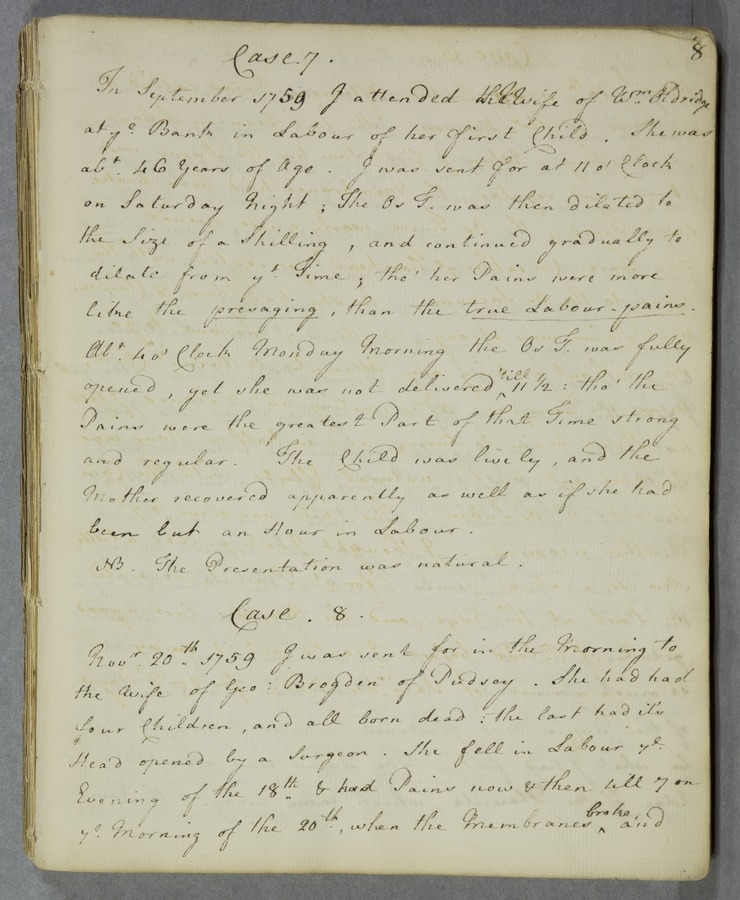 8
Case. 7.
In September 1759 I attended the Wife of Wm. Eldridge
at ye. Bank in Labour of her first Child. She was
abt. 46 Years of Age. I was sent for at 11 o' Clock
on Saturday Night; The Os T. was then dilated to
the Size of a Shilling, and continued gradually to
dilate from yt. Time; tho' her Pains were more
like the presaging, than the true Labour-pains.
Abt. 4 o' Clock Monday Morning the Os T. was fully
opened, yet she was not delivered 'till 11 1/2: tho' the
Pains were the greatest Part of that Time strong
and regular. The Child was lively, and the
Mother recovered apparently as well as if she had
been but an Hour in Labour.
NB. The Presentation was natural.
Case. 8.
Novr. 20th. 1759 I was sent for in the Morning to
the Wife of Geo: Brogden of Pudsey. She had had
four Children, and all born dead: the last had it's
Head opened by a Surgeon. She fell in Labour ye.
Evening of the 18th. & had Pains now & then till 7 on
ye. Morning of the 20th., when the Membranes broke, and